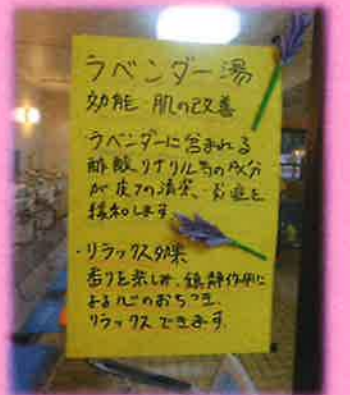 ラベンダー湯
効能 肌の改善
ラベンダーに含まれる
酢酸リナリル等の成分
が皮フの清潔、炎症を
緩和します。
・リラックス効果
香りを楽しみ、鎮静作用に
よる心のおちつき、
リラックスできます。